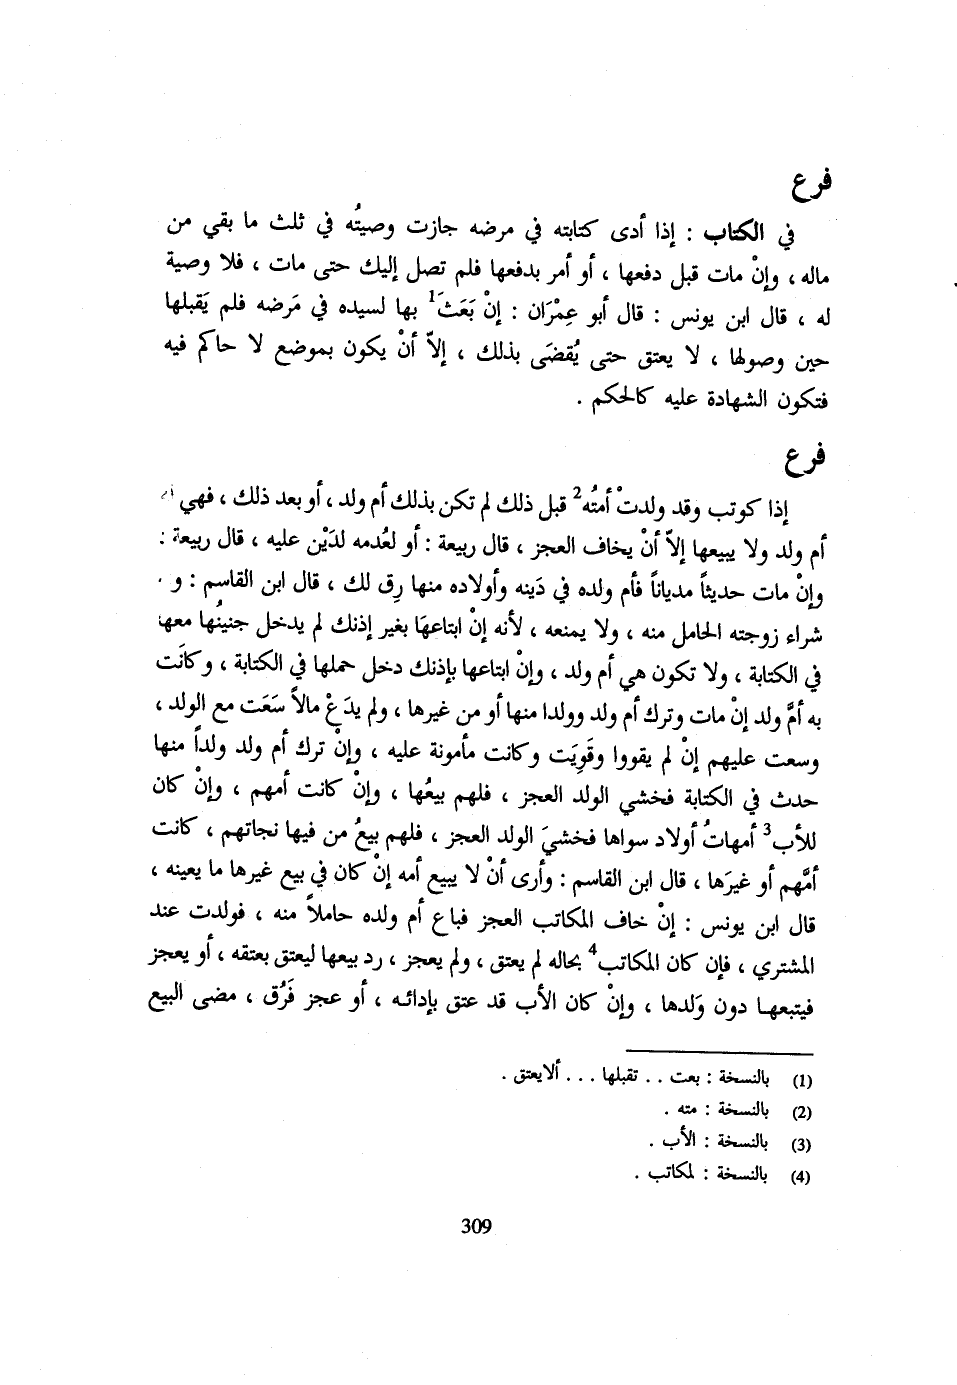 فرع
في الكتاب : إذا أدى كتابته في مرضه جازت وصيتُه في ثلث ما بقي من
ماله ، وإنْ مات قبل دفعها ، أو أمر بدفعها فلم تصل إليك حتى مات ، فلا وصية
له ، قال ابن يونس : قال أبو عِمْرَان : إنْ بَعَثَ1 بها لسيده في مَرضه فلم يَقبلها
حين وصولها ، لا يعتق حتى يُقضَى بذلك ، إلاّ أنْ يكون بموضع لا حاكم فيه
فتكون الشهادة عليه كالحكم .
فرع
إذا كوتب وقد ولدتْ أمتُه2 قبل ذلك لم تكن بذلك أم ولد ، أو بعد ذلك ، فهي
أم ولد ولا يبيعها إلاّ أنْ يخاف العجز ، قال ربيعة : أو لعُدمه لدَيْن عليه ، قال ربيعة :
وإنْ مات حديثاً مدياناً فأم ولده في دَينه وأولاده منها رِق لك ، قال ابن القاسم : و
شراء زوجته الحامل منه ، ولا يمنعه ، لأنه إنْ ابتاعهَا بغير إذنك لم يدخل جنينُها معها
في الكتابة ، ولا تكون هي أم ولد ، وإنْ ابتاعها بإذنك دخل حملها في الكتابة ، وكانَت
به أمَّ ولد إنْ مات وترك أم ولد وولدا منها أو من غيرها ، ولم يدَعْ مالاً سَعَت مع الولد ،
وسعت عليهم إنْ لم يقووا وقَوِيَت وكانت مأمونة عليه ، وإنْ ترك أم ولد ولداً منها
حدث في الكتابة فخشي الولد العجز ، فلهم بيعُها ، وإنْ كانت أمهم ، وإنْ كان
للأب3 أمهاتُ أولاد سواها فخشيَ الولد العجز ، فلهم بيعُ من فيها نجاتهم ، كانت
أمَّهم أو غيرَها ، قال ابن القاسم : وأرى أنْ لا يبيع أمه إنْ كان في بيع غيرها ما يعينه ،
قال ابن يونس : إنْ خاف المكاتب العجز فباع أم ولده حاملاً منه ، فولدت عند
المشتري ، فإن كان المكاتب4 بحاله لم يعتق ، ولم يعجز ، رد بيعها ليعتق بعتقه ، أو يعجز
فيتبعها دون وَلدها ، وإنْ كان الأب قد عتق بإدائه ، أو عجز فَرُق ، مضى البيع
(1) بالنسخة : بعت . . تقبلها . . . ألا يعتق .
(2) بالنسخة : مته .
(3) بالنسخة : الأب .
(4) بالنسخة : لمكاتب .
309